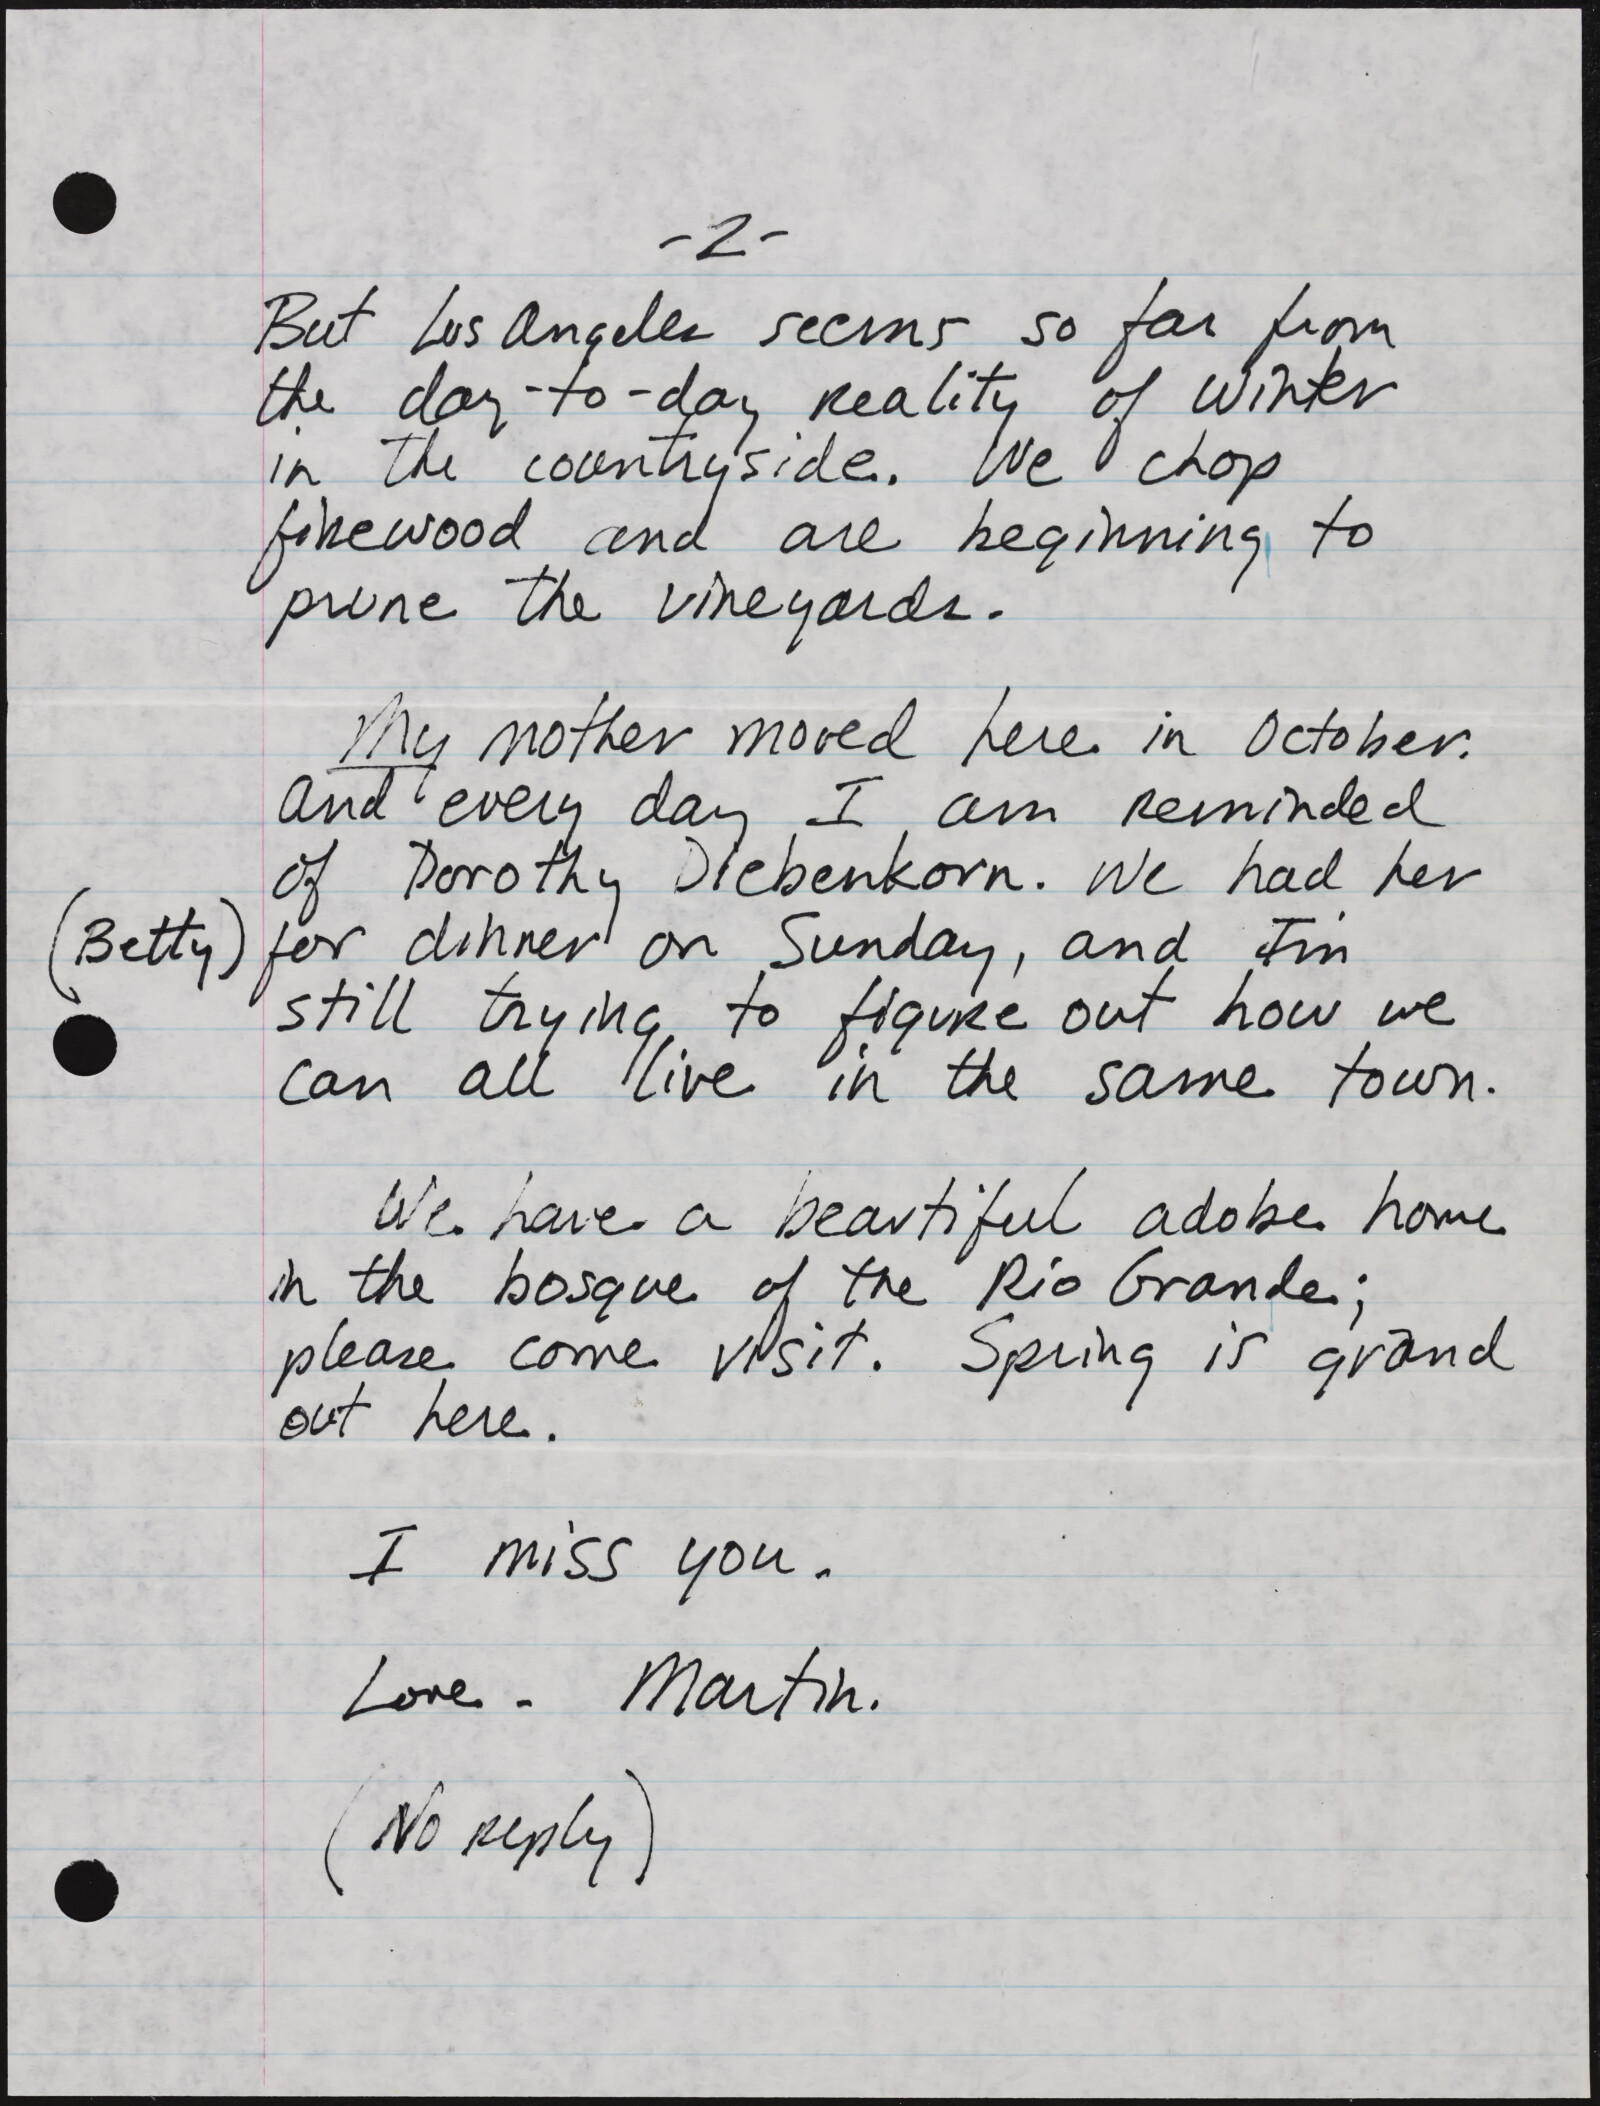 -2-
But Los Angeles seems so far from
the day-to-day reality of winter
in the countryside. We chop
firewood and are beginning to
prune the vineyards.
My mother moved here in October.
And every day I am reminded
of Dorothy Diebenkorn. We had her
(Betty) for dinner on Sunday, and I'm
still trying to figure out how we
can all live in the same town.
We have a beautiful adobe home
in the bosque of the Rio Grande;
please come visit. Spring is grand
out here.
I miss you.
Love - Martin.
(No reply)